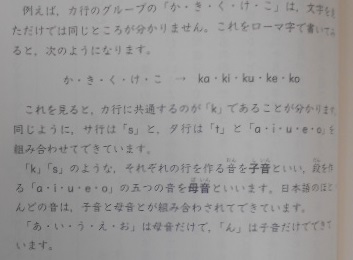 例えば、カ行のグループの「か・き・く・け・こ」は、文字を見
ただけでは同じところが分かりません。これをローマ字で書いてみ
ると、次のようになります。
か・き・く・け・こ → ka・ki・ku・ke・ko
これを見ると、カ行に共通するのが「k」であることが分かります
同じように、サ行は「s」と、タ行は「t」と「a・i・u・e・o」を
組み合わせてできています。
「k」「s」のような、それぞれの行を作る音を子音といい、段を作
る「a・i・u・e・o」の五つの音を母音といいます。日本語のほと
んどの音は、子音と母音とが組み合わされてできています。
「あ・い・う・え・お」は母音だけで、「ん」は子音だけでできて
います。